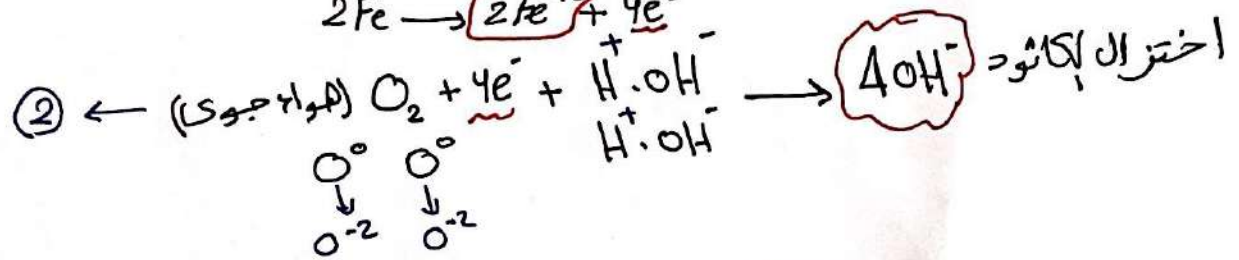 2Fe → 2Fe + 4e⁻
② ← (هواء جوى) O₂ + 4e⁻ + H⁺.OH⁻ → 4OH⁻ = اختزال / كاثود
H⁺.OH⁻
O⁰ O⁰
↓ ↓
O⁻² O⁻²